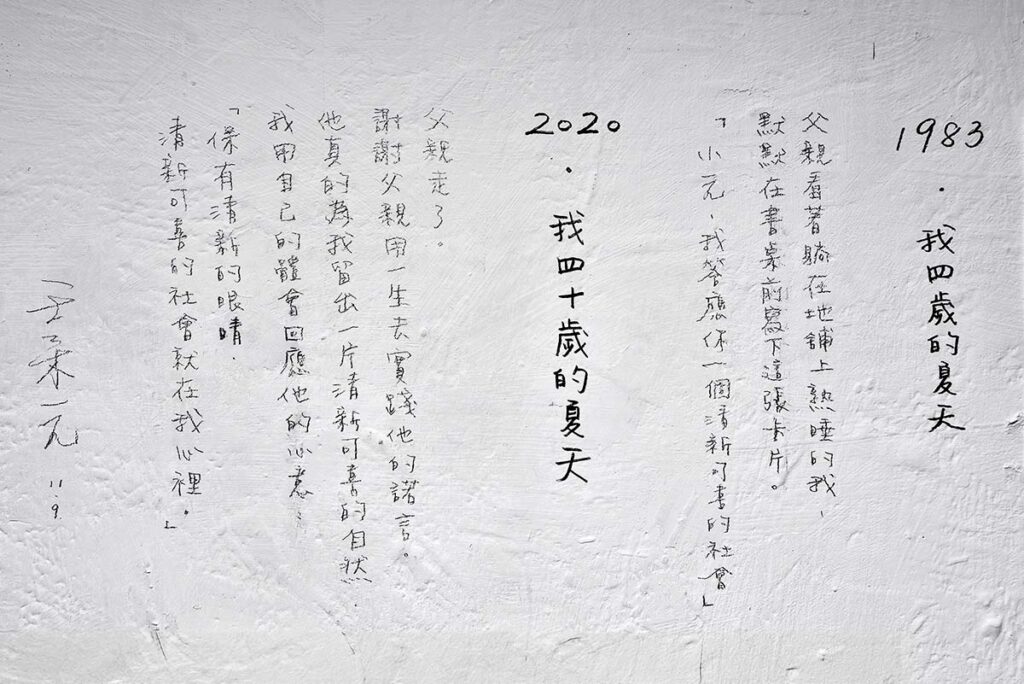 1983．我四歲的夏天
父親看著躺在地舖上熟睡的我、
默默在書桌前寫下這張卡片。
「小元、我答應你一個清新可喜的社會」
2020．我四十歲的夏天
父親走了。
謝謝父親用一生去實踐他的諾言。
他真的為我留出一片清新可喜的自然．
我用自己的體會回應他的心意：
「保有清新的眼睛．
清新可喜的社會就在我心裡。」
王柔元 11.9.